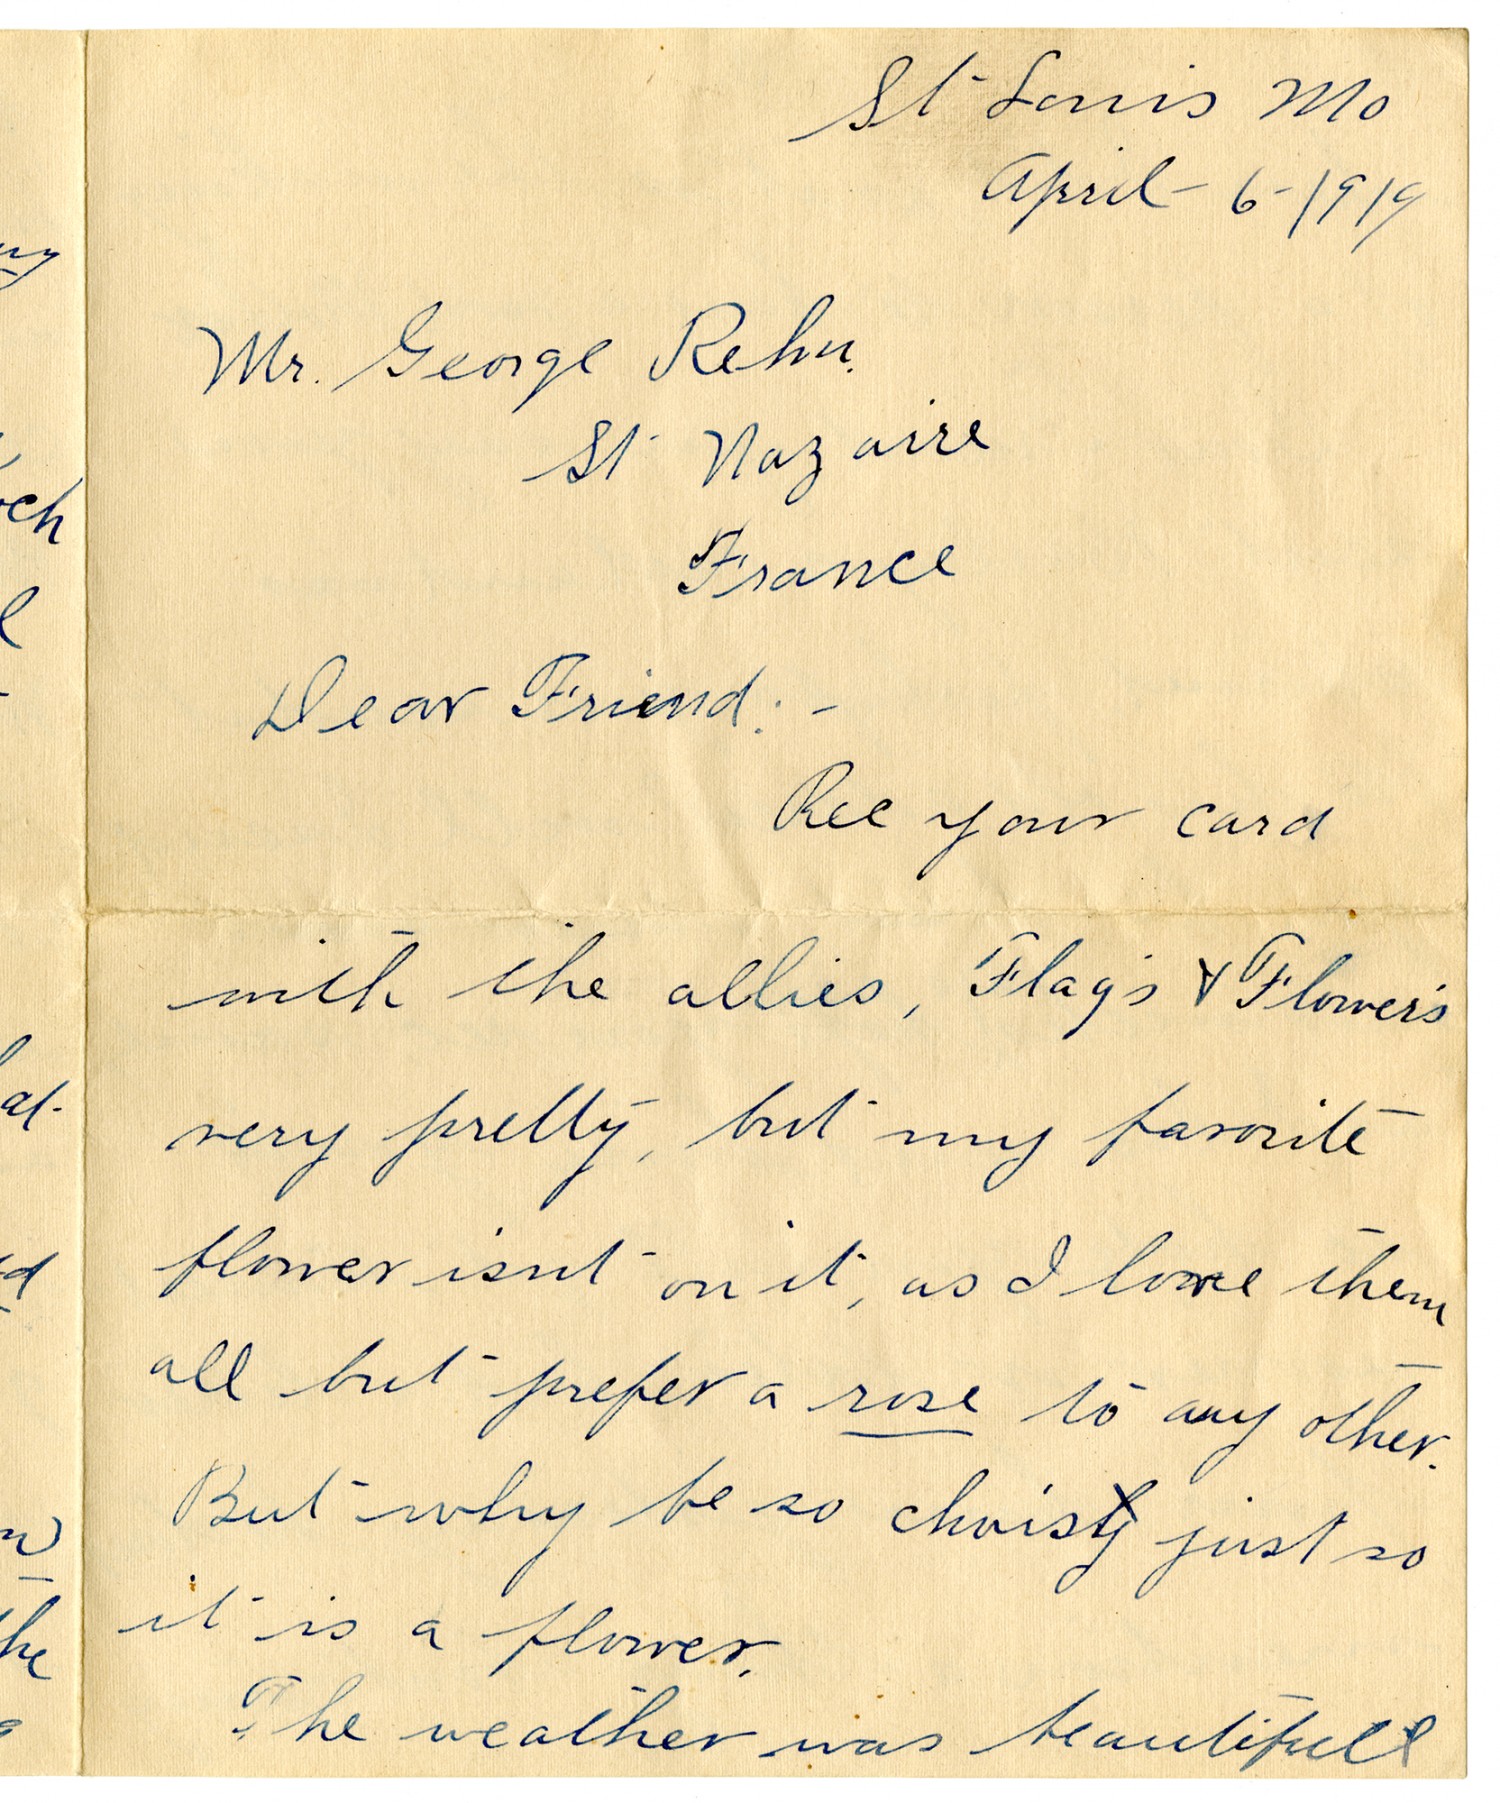 St Louis Mo
April-6-1919
Mr. George Rehn.
St Nazaire
France
Dear Friend:-
Rec your card
with the allies, Flag's & Flower's
very pretty, but my favorite
flower isnt on it, as I love them
all but prefer a rose to any other.
But why be so choisy just so
it is a flower.
The weather was beautifull